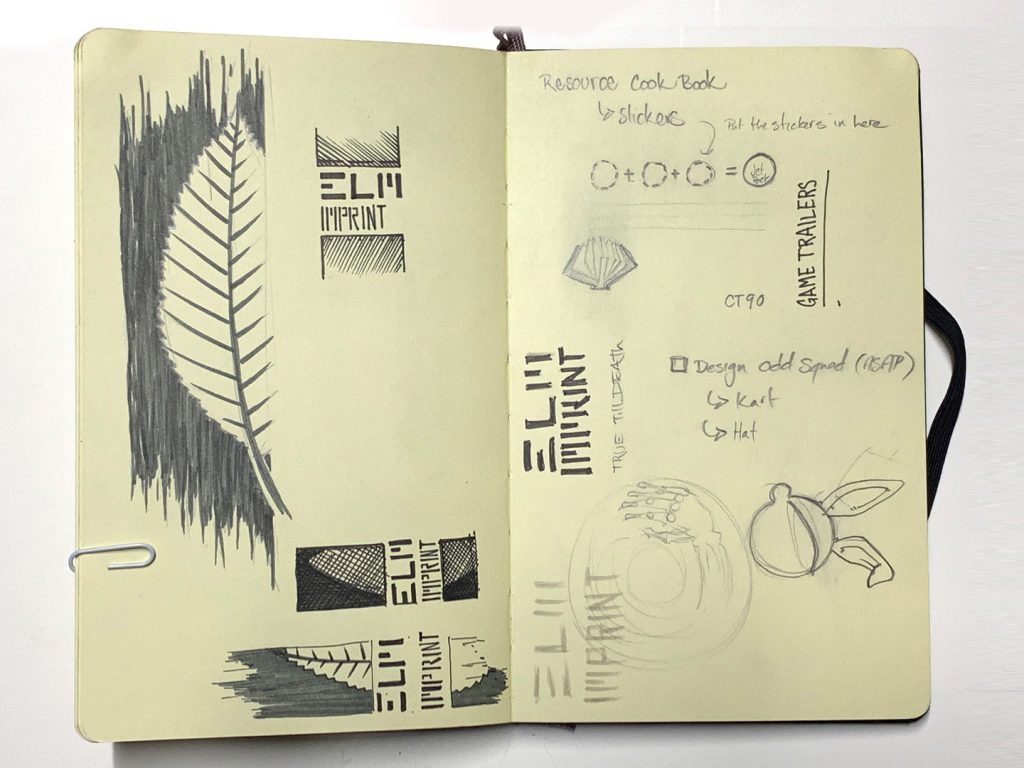 ELM
IMPRINT
ELM
IMPRINT
ELM
IMPRINT
Resource Cook Book
↳ Stickers
Put the stickers in here
+ + =
GAME TRAILERS
CT90
ELM
IMPRINT
TRUE TILL DEATH
Design Odd Squad (ASAP)
↳ Kart
↳ Hat
ELM
IMPRINT